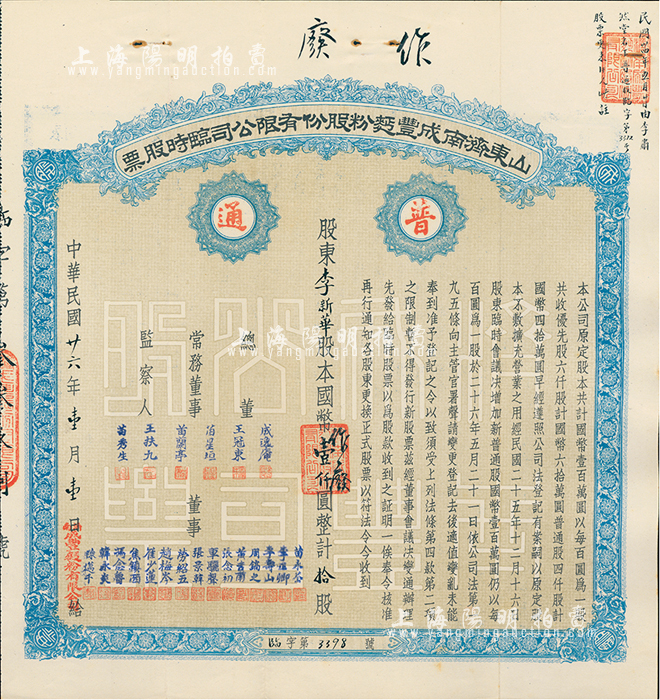 作廢
上海陽明拍賣
www.yangmingauction.com
山東濟南成豐麫粉股份有限公司臨時股票
普通
本公司原定股本共計國幣壹百萬圓以每百圓爲一股
共收優先股六仟股計國幣六拾萬圓普通股四仟股計
國幣四拾萬圓早經遵照公司法登記有案嗣以原定股
本不敷擴充營業之用經民國二十五年十二月十六日
股東臨時會議決增加新普通股國幣壹百萬圓仍以每
百圓爲一股於二十六年五月二十一日依公司法第一
九五條向主管官署聲請變更登記去後適值變亂未能
奉到准予登記之令以致須受上列法條第四款第二項
之限制暫不得發行新股票茲經董事會議決變通辦理
先發給臨時股票以爲股款收到之証明一俟奉令核准
再行通知各股東更換正式股票以符法令今收到
股東李新華股本國幣壹仟圓整計拾股
作廢
董
成逸菴
王冠東
常務董事
苗蘭亭
監察人
王扶九
苗秀生
董事
苗永谷
李壽山
周鏡之
張念初
張景韓
勞紹五
趙梅岑
崔少蓮
焦鏡洒
韓永奭
中華民國廿六年壹月壹日
成豐麫粉股份有限公司給
臨字第3398號